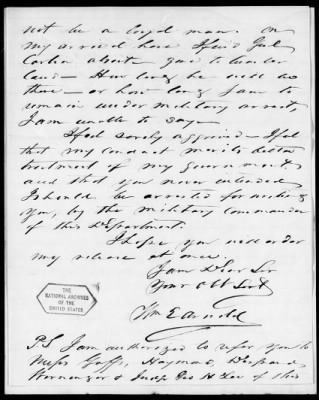 not be a loyal man. On
my arrival here I find Gnl
Carlin about gone to Cumber
land – How long he will be
there – or how long I am to
remain under military arrest,
I am unable to say –
I feel sorely aggrieved – I feel
that my conduct merits better
treatment of my government
and that you never intended
I should be arrested for writing
you, by the military commander
of this Department.
I hope you will order
my release at once.
I am Dear Sir
Your Obt Servt
Wm E Arnold
THE
NATIONAL ARCHIVES
OF THE
UNITED STATES
P.S. I am authorized to refer you to
Messrs Goffs, Haymond, Despard,
& Judge Geo H Lee of this